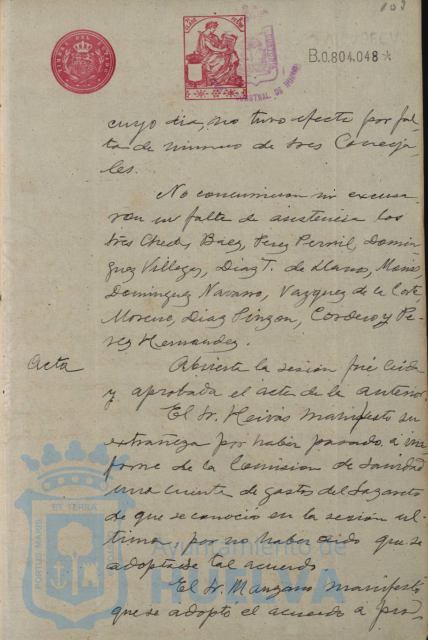 103
B.0.804.048*
cuyo dia, no tuvo efecto por fal-
ta de numero de Sres Conceja-
les.
No concurrieron ni excusa-
ron su falta de asistencia los
Sres Checa, Baez, Perez Pernil, Domin-
guez Villegas, Diaz T. de Llano,
Dominguez Navarro, Vazquez de la Corte
Moreno, Diaz Pinzon, Cordero y Pe-
rez Hernandez.
Acta
Abierta la sesión fué leida
y aprobada el acta de la anterior
El Sr. manifesto su
extrañeza por haber pasado á in-
forme de la Comision de Sanidad
una cuenta de gastos del Lazareto
de que se conocio en la sesión ul-
tima, por no haber oido que se
adoptase tal acuerdo.
El Sr. Manzano manifestó
que se adoptó el acuerdo á pro-
Ayuntamiento de
HUELVA
PORTUS MARIS
ET TERRÆ